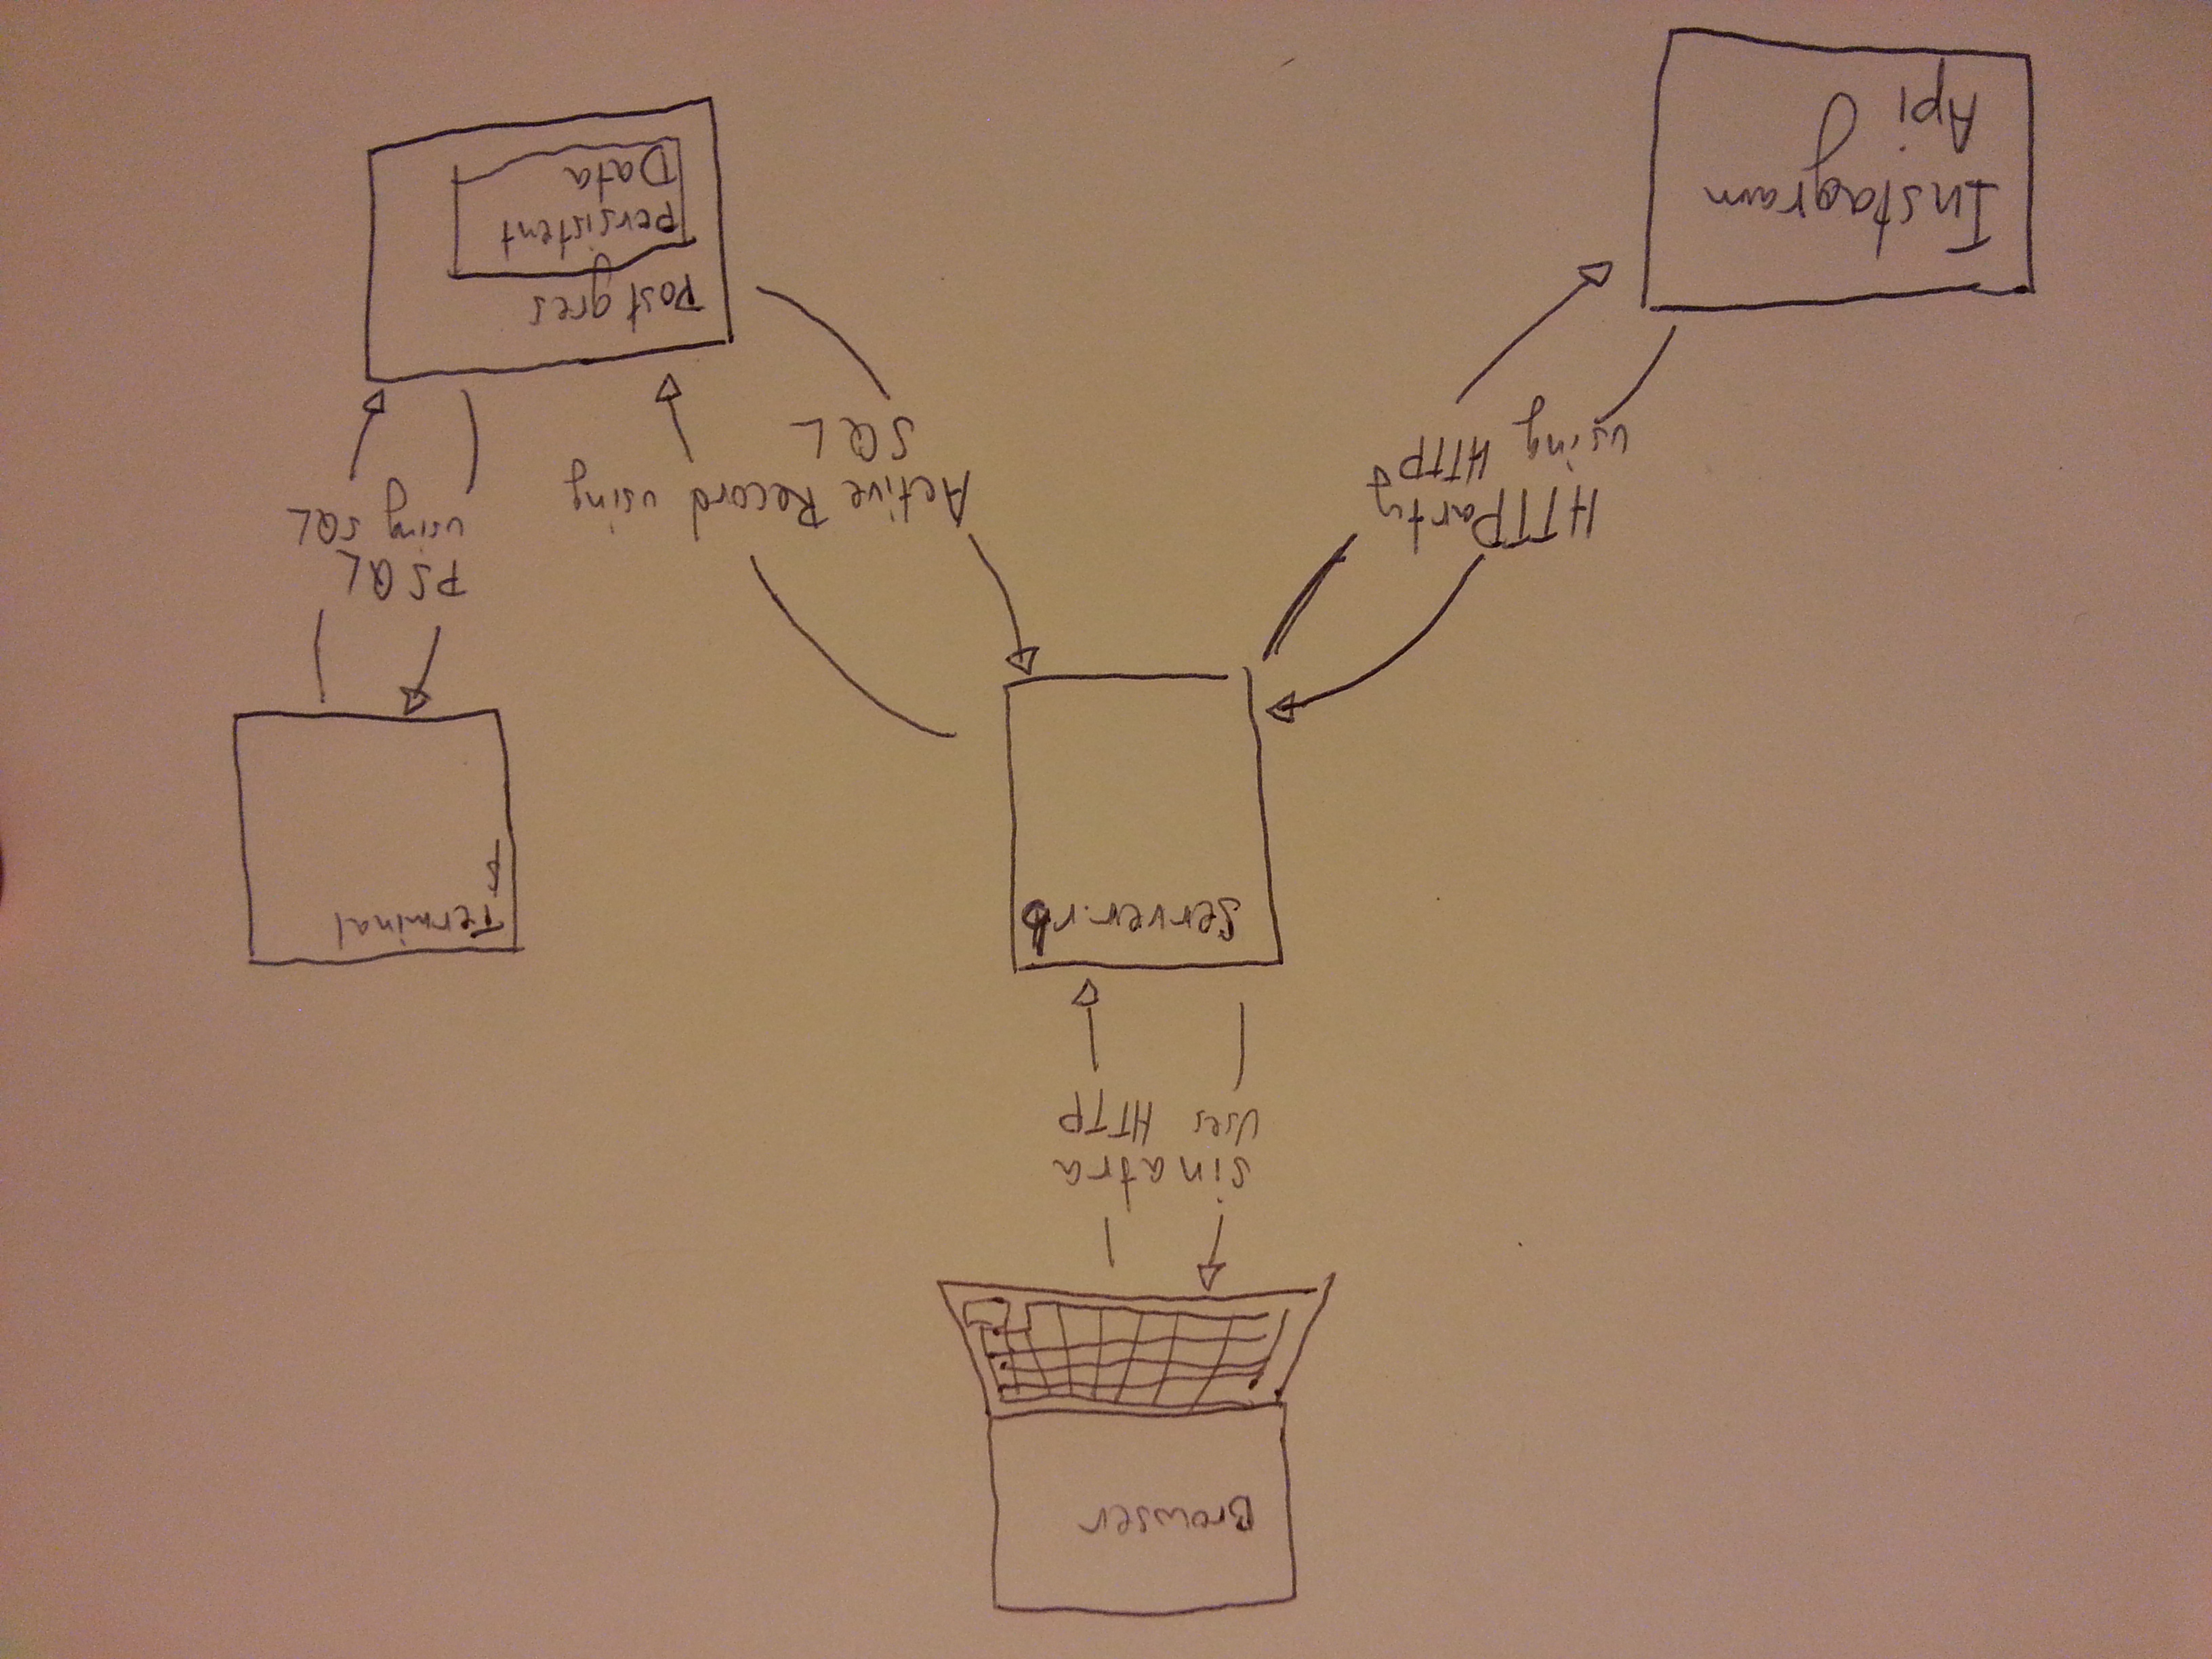 Browser
sinatra
Uses HTTP
server.rb
Terminal
$
HTTParty
using HTTP
Active Record using
SQL
PSQL
using SQL
Instagram
Api
Postgres
Persistent
Data